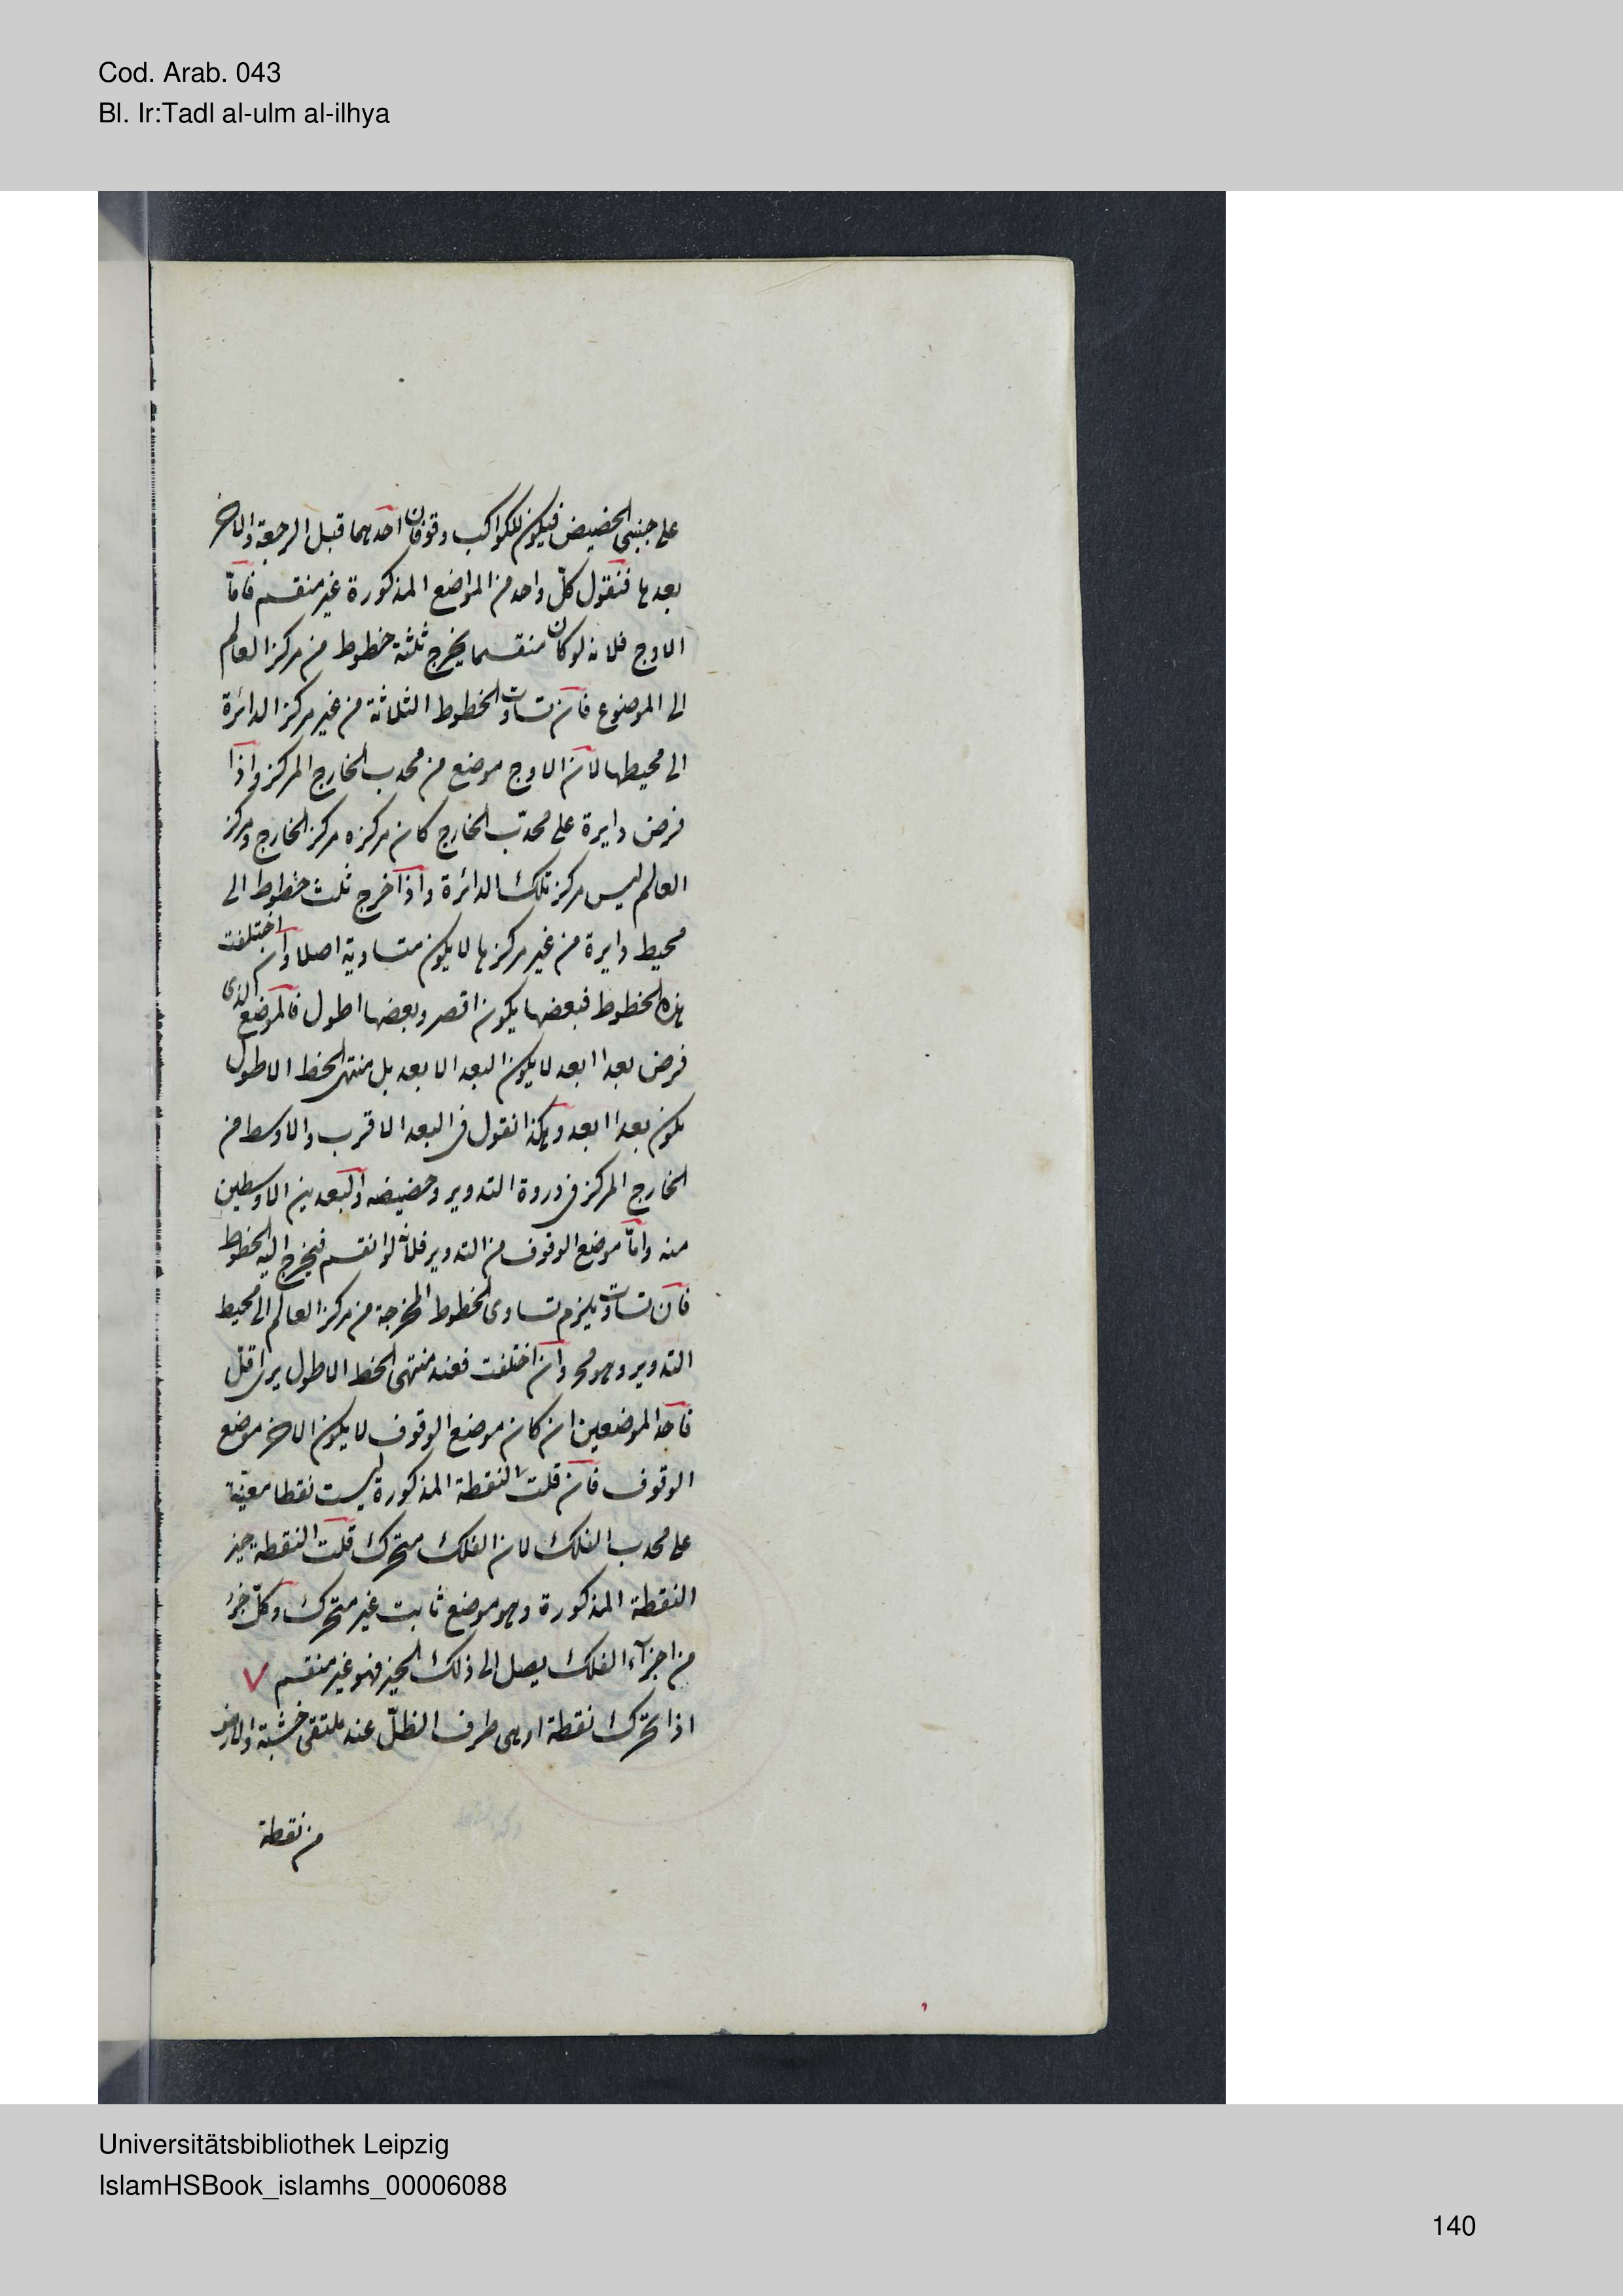 Cod. Arab. 043
Bl. Ir:Tadl al-ulm al-ilhya
على جنبتى الحضيض فيكون للكواكب وقوفان احدهما قبل الرجعة والاخر
بعدها فنقول كلّ واحد من المواضع المذكورة غير منقسم فامّا
الاوج فلانه لو كان منقسما يخرج ثلثة خطوط من مركز العالم
الى الموضوع فان تساوت الخطوط الثلاثة من غير مركز الدائرة
الى محيطها لان الاوج موضع من محدب الخارج المركز واذا
فرض دايرة على محدّب الخارج كان مركزه مركز الخارج ومركز
العالم ليس مركز تلك الدائرة واذا اخرج ثلث خطوط الى
محيط دايرة من غير مركزها لا يكون متساوية اصلا وان اختلفت
هذه الخطوط فبعضها يكون اقصر وبعضها اطول فالموضع الذى
فرض بعدا ابعد لا يكون البعد الابعد بل منتهى الخط الاطول
يكون بعدا ابعد وهكذا نقول فى البعد الاقرب والاوسط من
الخارج المركز فى ذروة التدوير وحضيضه والبعدين الاوسطين
منه وامّا موضع الوقوف من التدوير فلانّه لو انقسم فيخرج اليه الخطوط
فان تساوت يلزم تساوى الخطوط المخرجة من مركز العالم الى محيط
التدوير وهو مح وان اختلفت فعند منتهى الخط الاطول يرى اقلّ
فاحد الموضعين ان كان موضع الوقوف لا يكون الاخر موضع
الوقوف فان قلت النقطة المذكورة ليست نقطا معيّنة
على محدب الفلك لان الفلك متحرك قلت النقطة حيز
النقطة المذكورة وهو موضع ثابت غير متحرك وكلّ جزء
من اجزآء الفلك يصل الى ذلك الحيز فهو غير منقسم
اذا تحرك نقطة او هى طرف الظلّ عند ملتقى خشبة والارض
من نقطة
Universitätsbibliothek Leipzig
IslamHSBook_islamhs_00006088
140